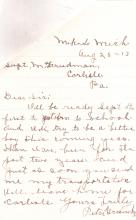 Mich
Aug 28 - 13
Supt. M. Friedman
Carlisle
Pa.
Dear Sir:
Will be ready Sept the
first to go to school
and will try to be a better
boy this coming year
than have been for the
past two years. and
just as soon you send
me my transportation
will leave home for
Carlisle. Yours truly
Peter